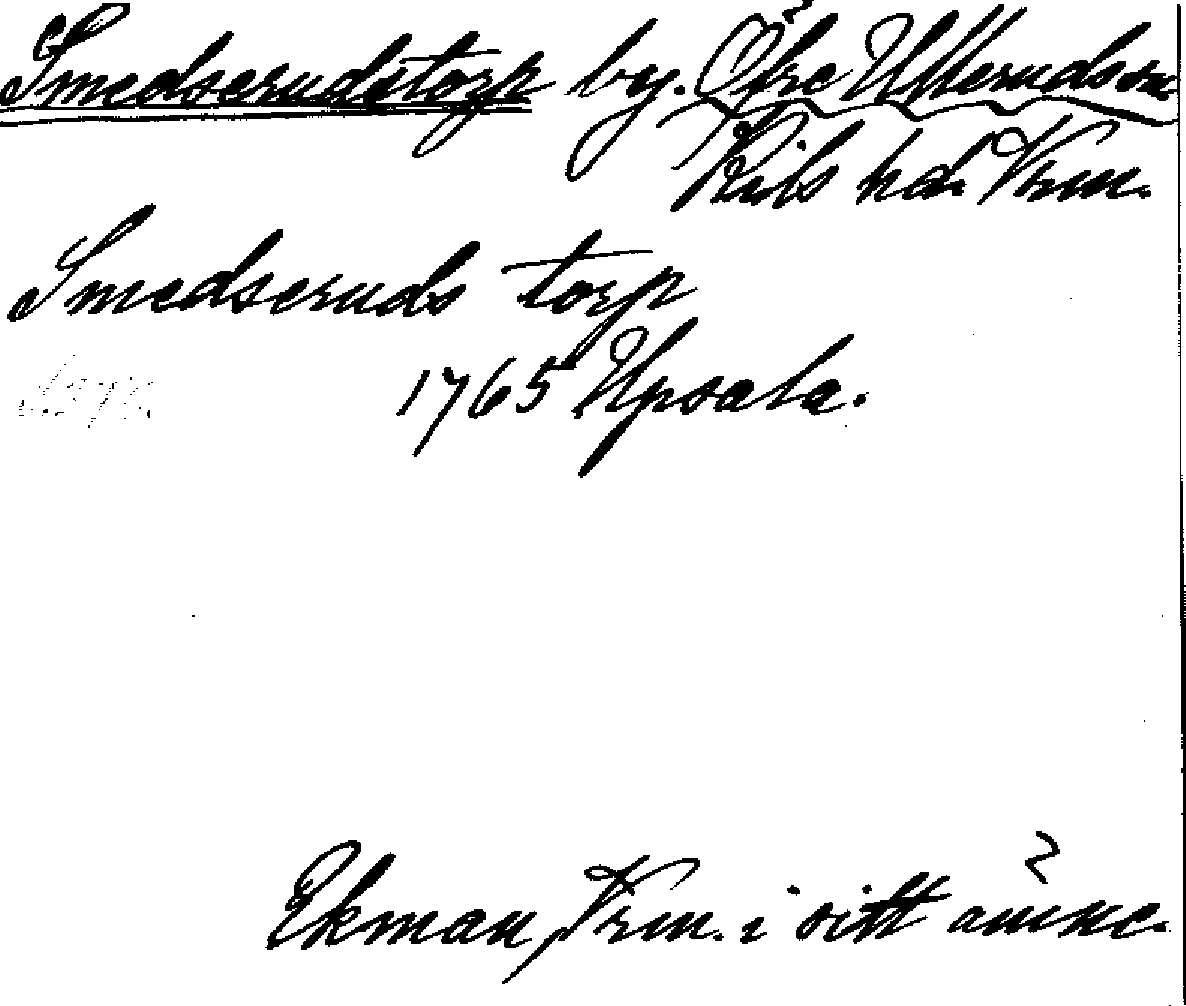 Smedserudstorp by. Öfre Ulleruds sn.
Kils hd. Vrm.
Smedseruds torp
1765 Upsala.
Ekman, Vrm. i sitt ämne.